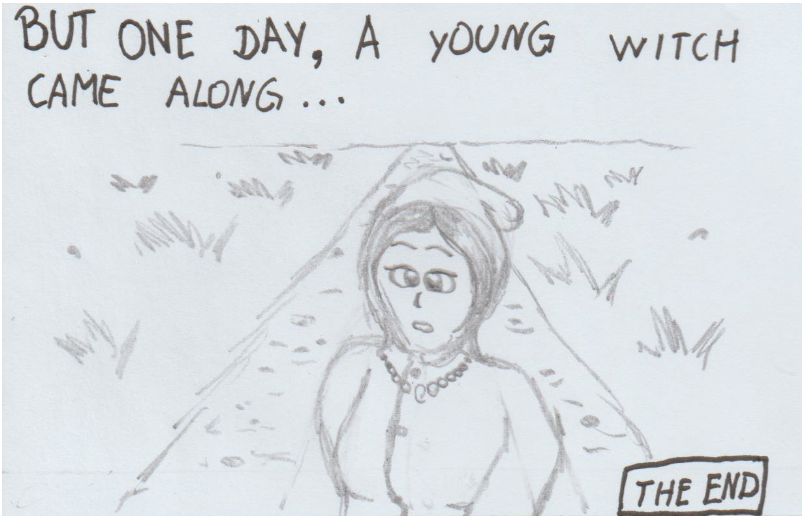 BUT ONE DAY, A YOUNG WITCH
CAME ALONG...
THE END